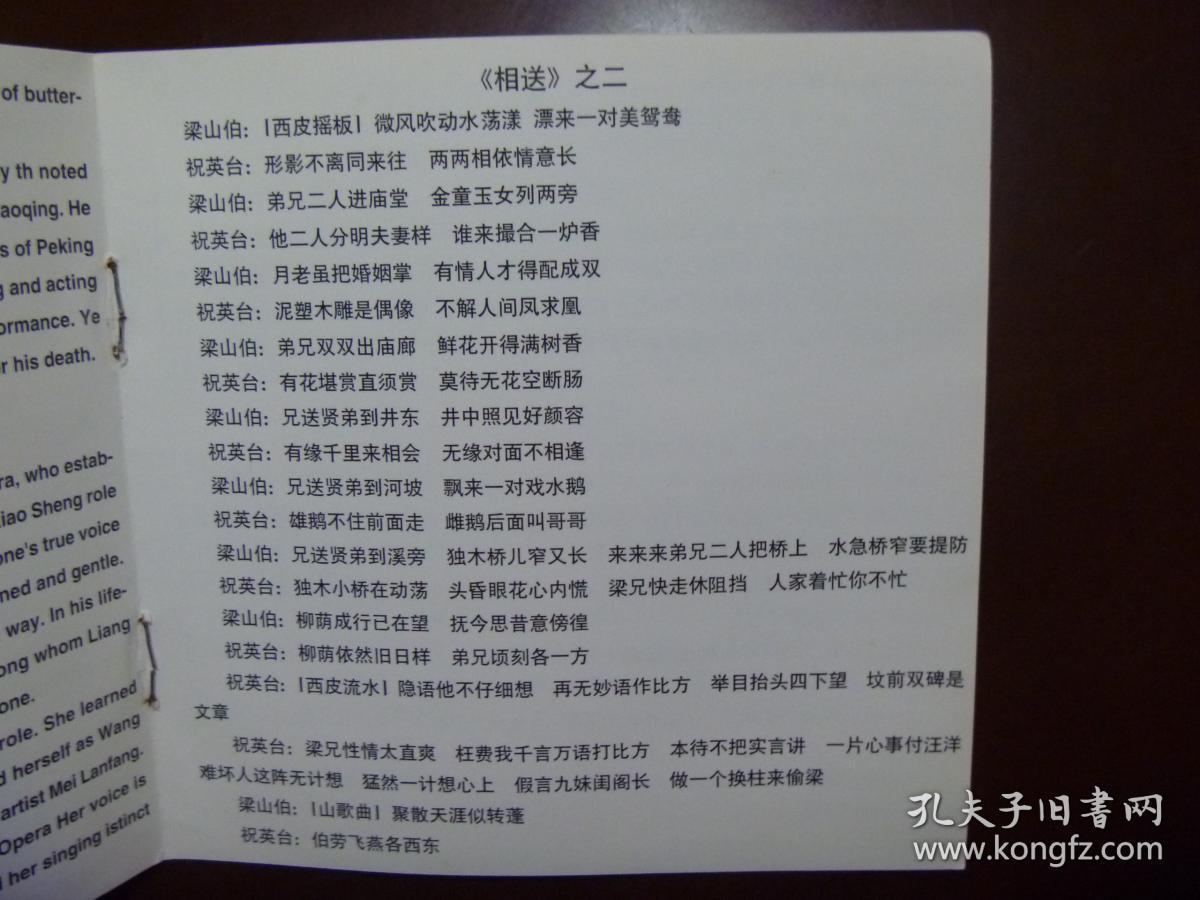 of butter-
y th noted
aoqing. He
s of Peking
g and acting
ormance. Ye
r his death.
ra, who estab-
iao Sheng role
one's true voice
ned and gentle.
way. In his life-
ong whom Liang
one.
role. She learned
d herself as Wang
artist Mei Lanfang.
Opera Her voice is
her singing istinct
《相送》之二
梁山伯：|西皮摇板| 微风吹动水荡漾 漂来一对美鸳鸯
祝英台：形影不离同来往 两两相依情意长
梁山伯：弟兄二人进庙堂 金童玉女列两旁
祝英台：他二人分明夫妻样 谁来撮合一炉香
梁山伯：月老虽把婚姻掌 有情人才得配成双
祝英台：泥塑木雕是偶像 不解人间凤求凰
梁山伯：弟兄双双出庙廊 鲜花开得满树香
祝英台：有花堪赏直须赏 莫待无花空断肠
梁山伯：兄送贤弟到井东 井中照见好颜容
祝英台：有缘千里来相会 无缘对面不相逢
梁山伯：兄送贤弟到河坡 飘来一对戏水鹅
祝英台：雄鹅不住前面走 雌鹅后面叫哥哥
梁山伯：兄送贤弟到溪旁 独木桥儿窄又长 来来来弟兄二人把桥上 水急桥窄要提防
祝英台：独木小桥在动荡 头昏眼花心内慌 梁兄快走休阻挡 人家着忙你不忙
梁山伯：柳荫成行已在望 抚今思昔意傍徨
祝英台：柳荫依然旧日样 弟兄顷刻各一方
祝英台：|西皮流水| 隐语他不仔细想 再无妙语作比方 举目抬头四下望 坟前双碑是
文章
祝英台：梁兄性情太直爽 枉费我千言万语打比方 本待不把实言讲 一片心事付汪洋
难坏人这阵无计想 猛然一计想心上 假言九妹闺阁长 做一个换柱来偷梁
梁山伯：|山歌曲| 聚散天涯似转蓬
祝英台：伯劳飞燕各西东
孔夫子旧书网
www.kongfz.com